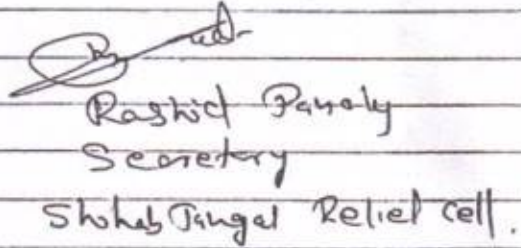 Rashid Panoly
Secretary
Shihab Tangal Relief Cell.